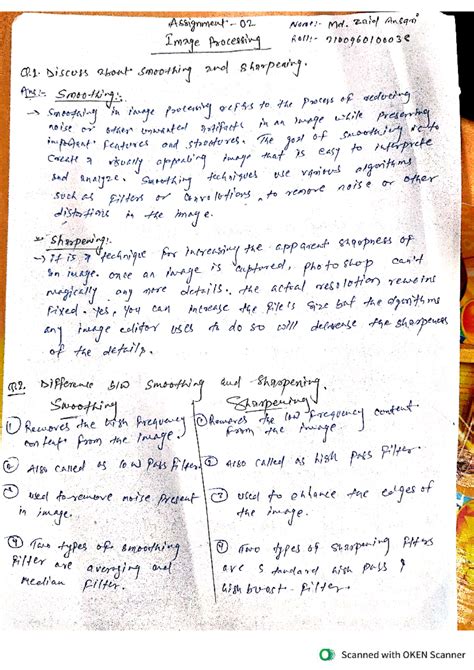 Assignment:- 02
Name:- Md. Zaid Ansari
Image Processing
Roll:- 2100960100038
Q.1. Discuss about smoothing and sharpening.
Ans:- Smoothing:-
→ Smoothing in image processing refers to the process of reducing
noise or other unwanted artifacts in an image while preserving
important features and structures. The goal of smoothing is to
create a visually appealing image that is easy to interpret
and analyze. Smoothing techniques use various algorithms
such as filters or convolutions, to remove noise or other
distortions in the image.
* Sharpening:-
→ it is a technique for increasing the apparent sharpness of
an image. once an image is captured, Photoshop can't
magically any more details. the actual resolution remains
fixed. Yes, you can increase the file's size but the algorithms
any image editor uses to do so will decrease the sharpeness
of the details.
Q2. Difference b/w Smoothing and Sharpening.
Smoothing
① Removes the high frequency
content from the image.
② Also called as low pass filter
③ used to remove noise present
in image.
④ Two types of smoothing
filter are averaging and
median filter.
Sharpening
① Removes the low frequency content
from the image.
② also called as high pass filter.
③ used to enhance the edges of
the image.
④ Two types of sharpening filters
are standard high pass &
high boost - filter.
Scanned with OKEN Scanner